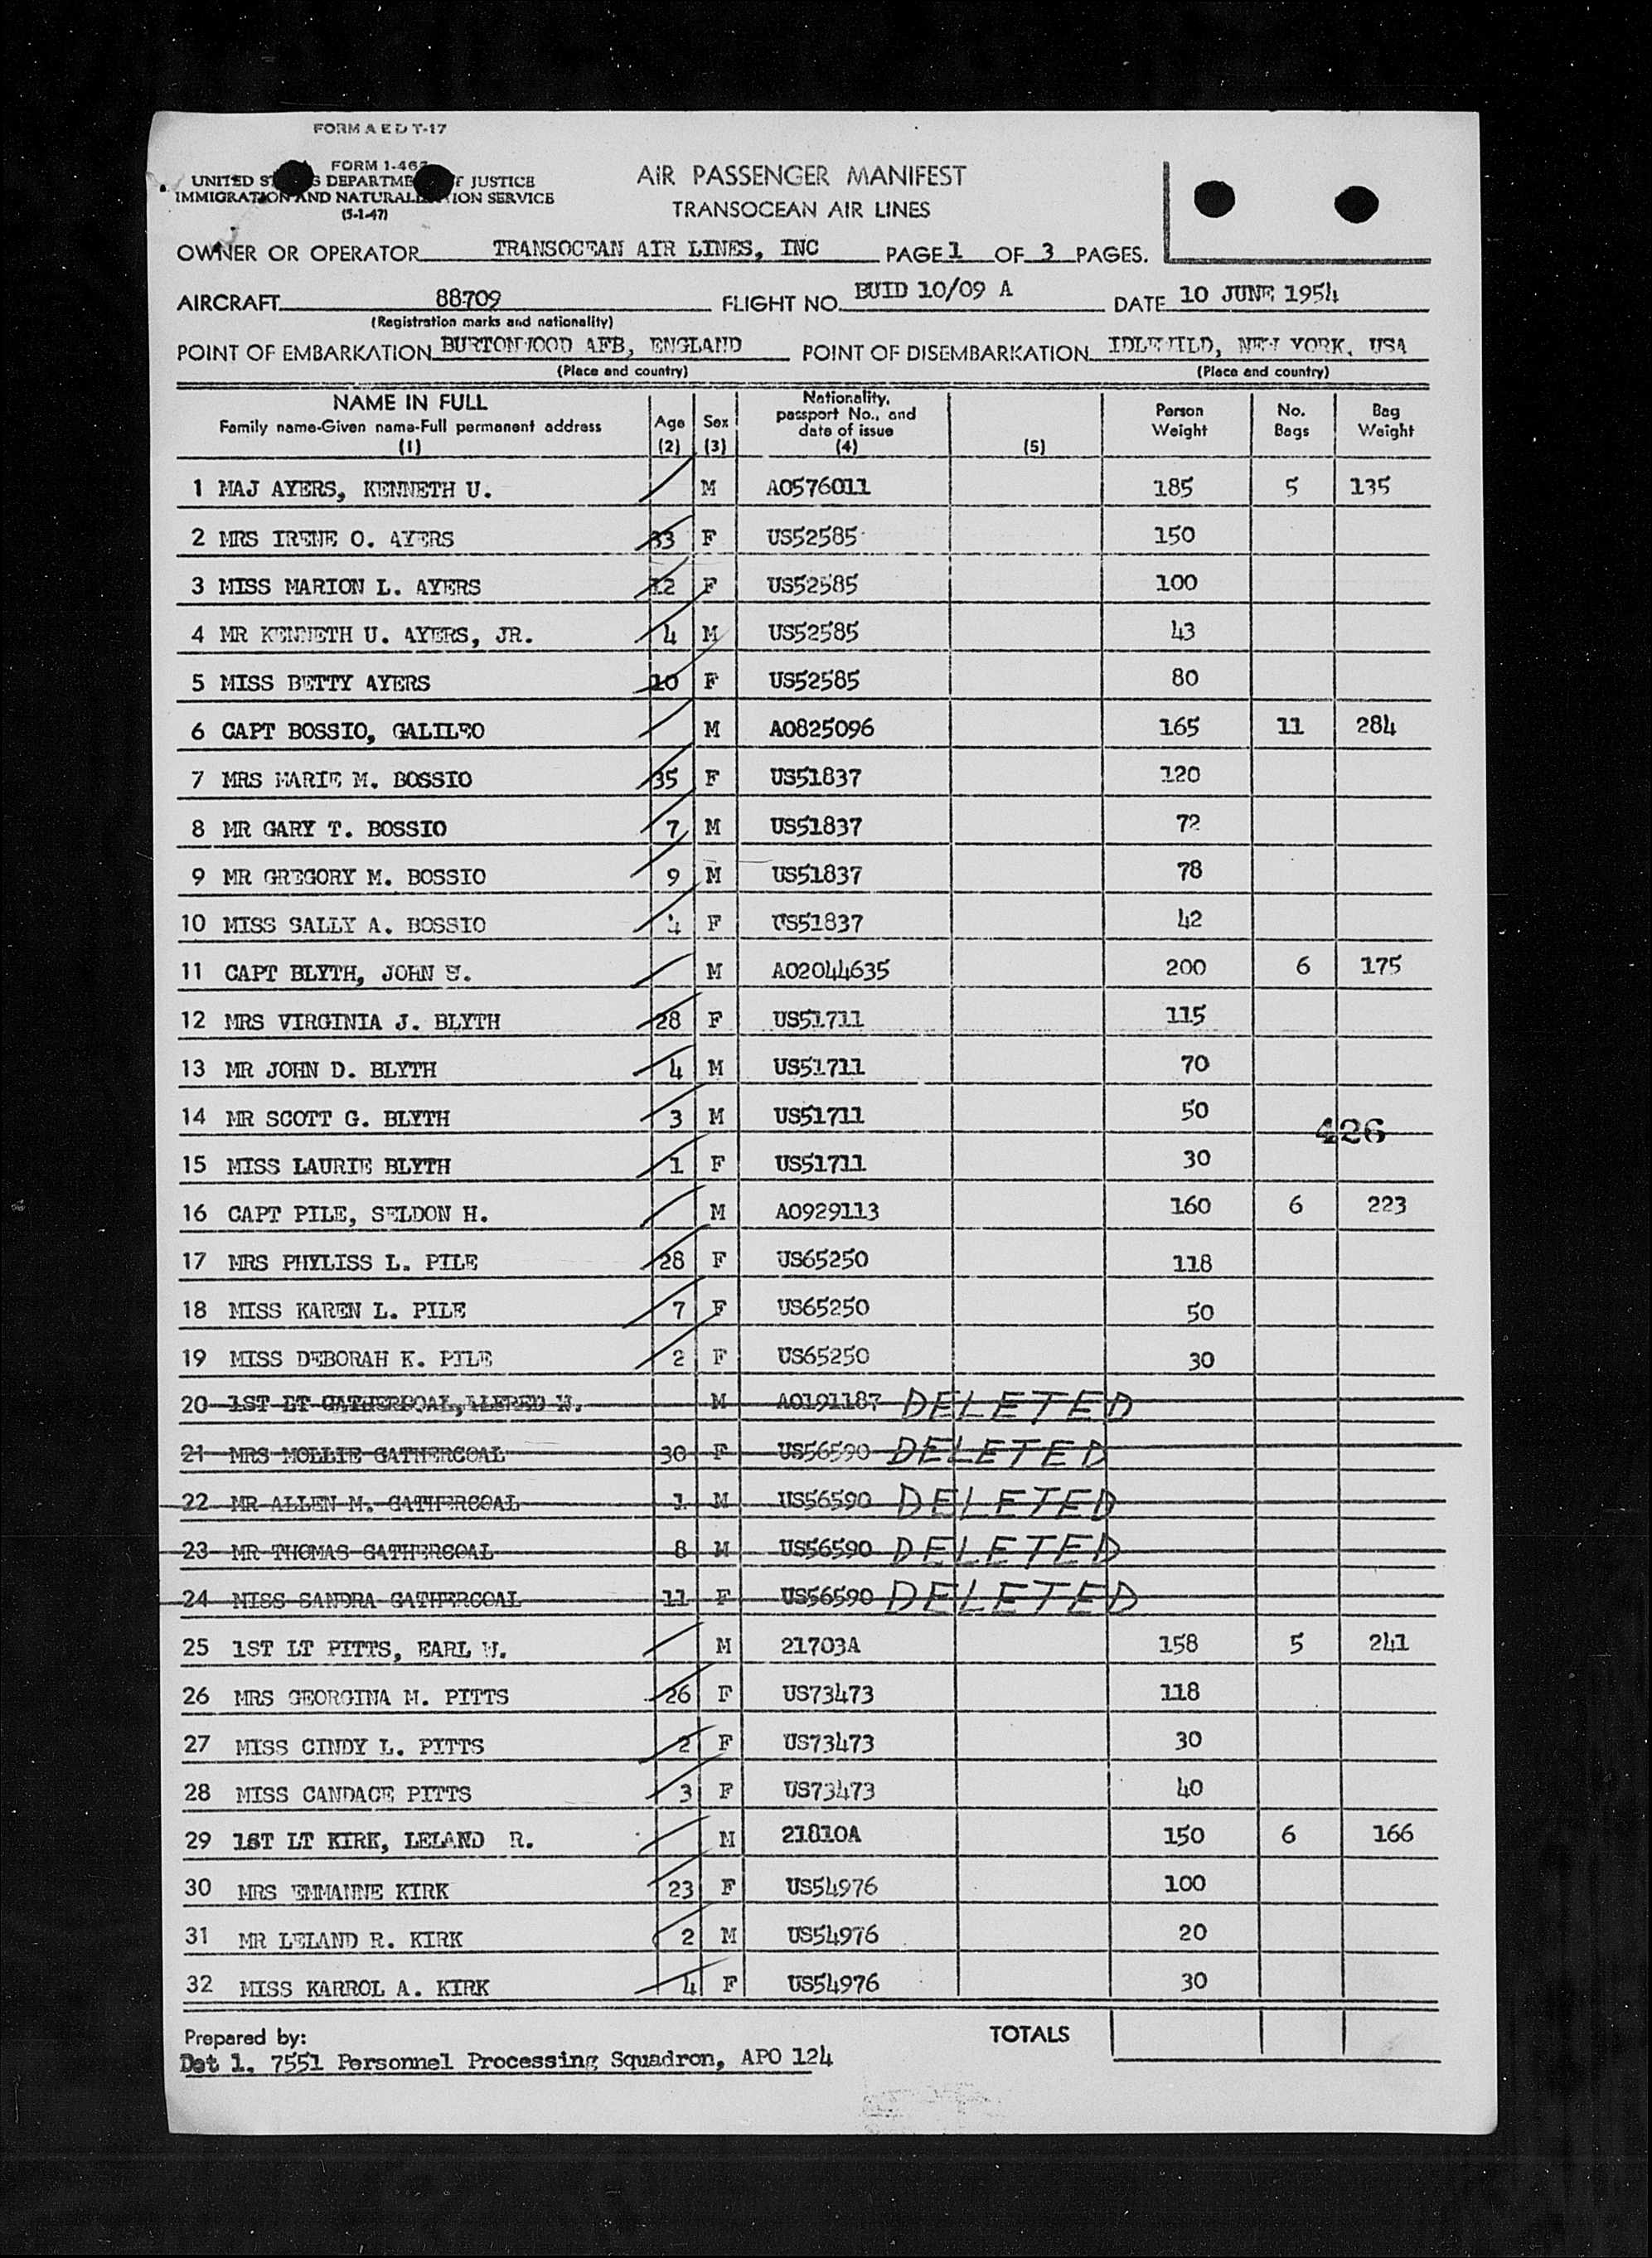 FORM A E D T-17
FORM 1-46
UNITED S S DEPARTME F JUSTICE
IMMIGRATION AND NATURAL ION SERVICE
(5-1-47)
AIR PASSENGER MANIFEST
TRANSOCEAN AIR LINES
OWNER OR OPERATOR TRANSOCEAN AIR LINES, INC PAGE 1 OF 3 PAGES.
AIRCRAFT 88709 FLIGHT NO. BUID 10/09 A DATE 10 JUNE 1954
(Registration marks and nationality)
POINT OF EMBARKATION BURTONWOOD AFB, ENGLAND POINT OF DISEMBARKATION IDLEWILD, NEW YORK, USA
(Place and country) (Place and country)
NAME IN FULL
Family name-Given name-Full permanent address
(1)
Age
(2)
Sex
(3)
Nationality,
passport No., and
date of issue
(4)
(5)
Person
Weight
No.
Bags
Bag
Weight
1 MAJ AYERS, KENNETH U. M AO576011 185 5 135
2 MRS IRENE O. AYERS 33 F US52585 150
3 MISS MARION L. AYERS 12 F US52585 100
4 MR KENNETH U. AYERS, JR. 4 M US52585 43
5 MISS BETTY AYERS 10 F US52585 80
6 CAPT BOSSIO, GALILEO M AO825096 165 11 284
7 MRS MARIE M. BOSSIO 35 F US51837 120
8 MR GARY T. BOSSIO 7 M US51837 72
9 MR GREGORY M. BOSSIO 9 M US51837 78
10 MISS SALLY A. BOSSIO 4 F US51837 42
11 CAPT BLYTH, JOHN W. M AO2044635 200 6 175
12 MRS VIRGINIA J. BLYTH 28 F US51711 115
13 MR JOHN D. BLYTH 4 M US51711 70
14 MR SCOTT G. BLYTH 3 M US51711 50
426
15 MISS LAURIE BLYTH 1 F US51711 30
16 CAPT PILE, SELDON H. M AO929113 160 6 223
17 MRS PHYLISS L. PILE 28 F US65250 118
18 MISS KAREN L. PILE 7 F US65250 50
19 MISS DEBORAH K. PILE 2 F US65250 30
20 1ST LT GATHERCOAL, ALFRED W. M AO191187 DELETED
21 MRS MOLLIE GATHERCOAL 30 F US56590 DELETED
22 MR ALLEN M. GATHERCOAL 1 M US56590 DELETED
23 MR THOMAS GATHERCOAL 8 M US56590 DELETED
24 MISS SANDRA GATHERCOAL 11 F US56590 DELETED
25 1ST LT PITTS, EARL W. M 21703A 158 5 241
26 MRS GEORGINA M. PITTS 26 F US73473 118
27 MISS CINDY L. PITTS 2 F US73473 30
28 MISS CANDACE PITTS 3 F US73473 40
29 1ST LT KIRK, LELAND R. M 21810A 150 6 166
30 MRS EMMANNE KIRK 23 F US54976 100
31 MR LELAND R. KIRK 2 M US54976 20
32 MISS KARROL A. KIRK 4 F US54976 30
Prepared by: TOTALS
Det 1. 7551 Personnel Processing Squadron, APO 124